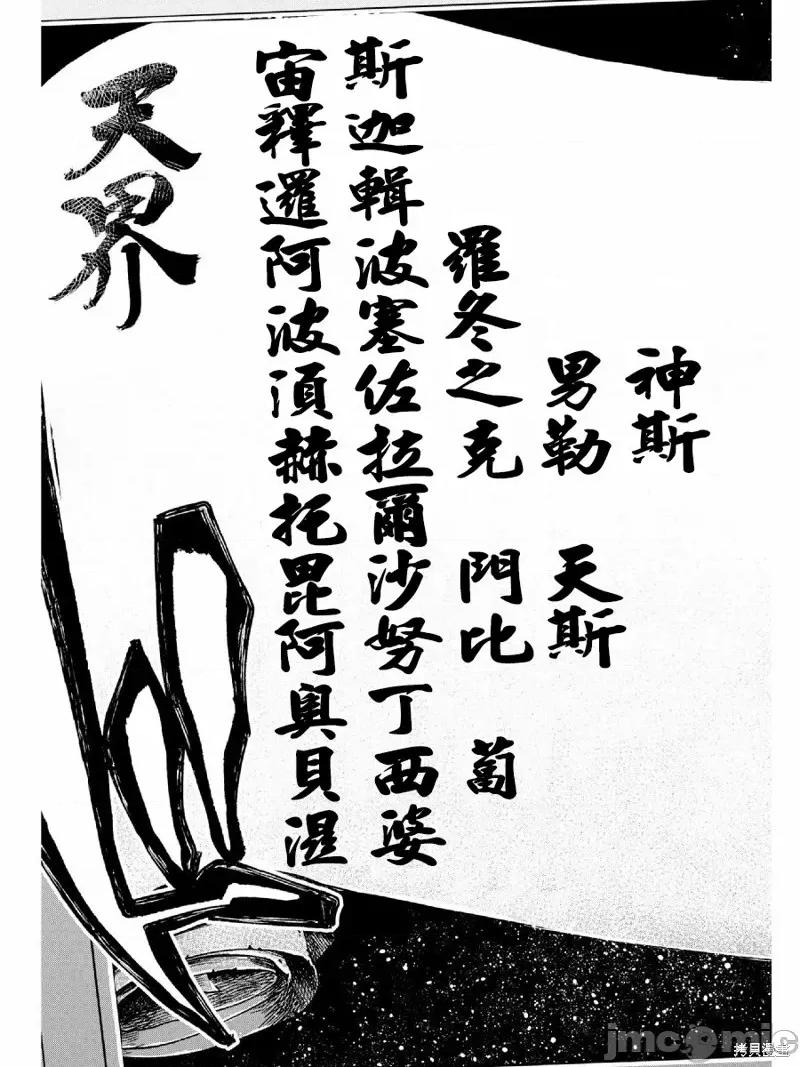 天界
宙斯
釋迦
邏輯
阿波羅
波塞冬
須佐之男神
赫拉克勒斯
托爾
毘沙門天
阿努比斯
奧丁
貝西蔔
湿婆
jmcomic
拷貝漫畫